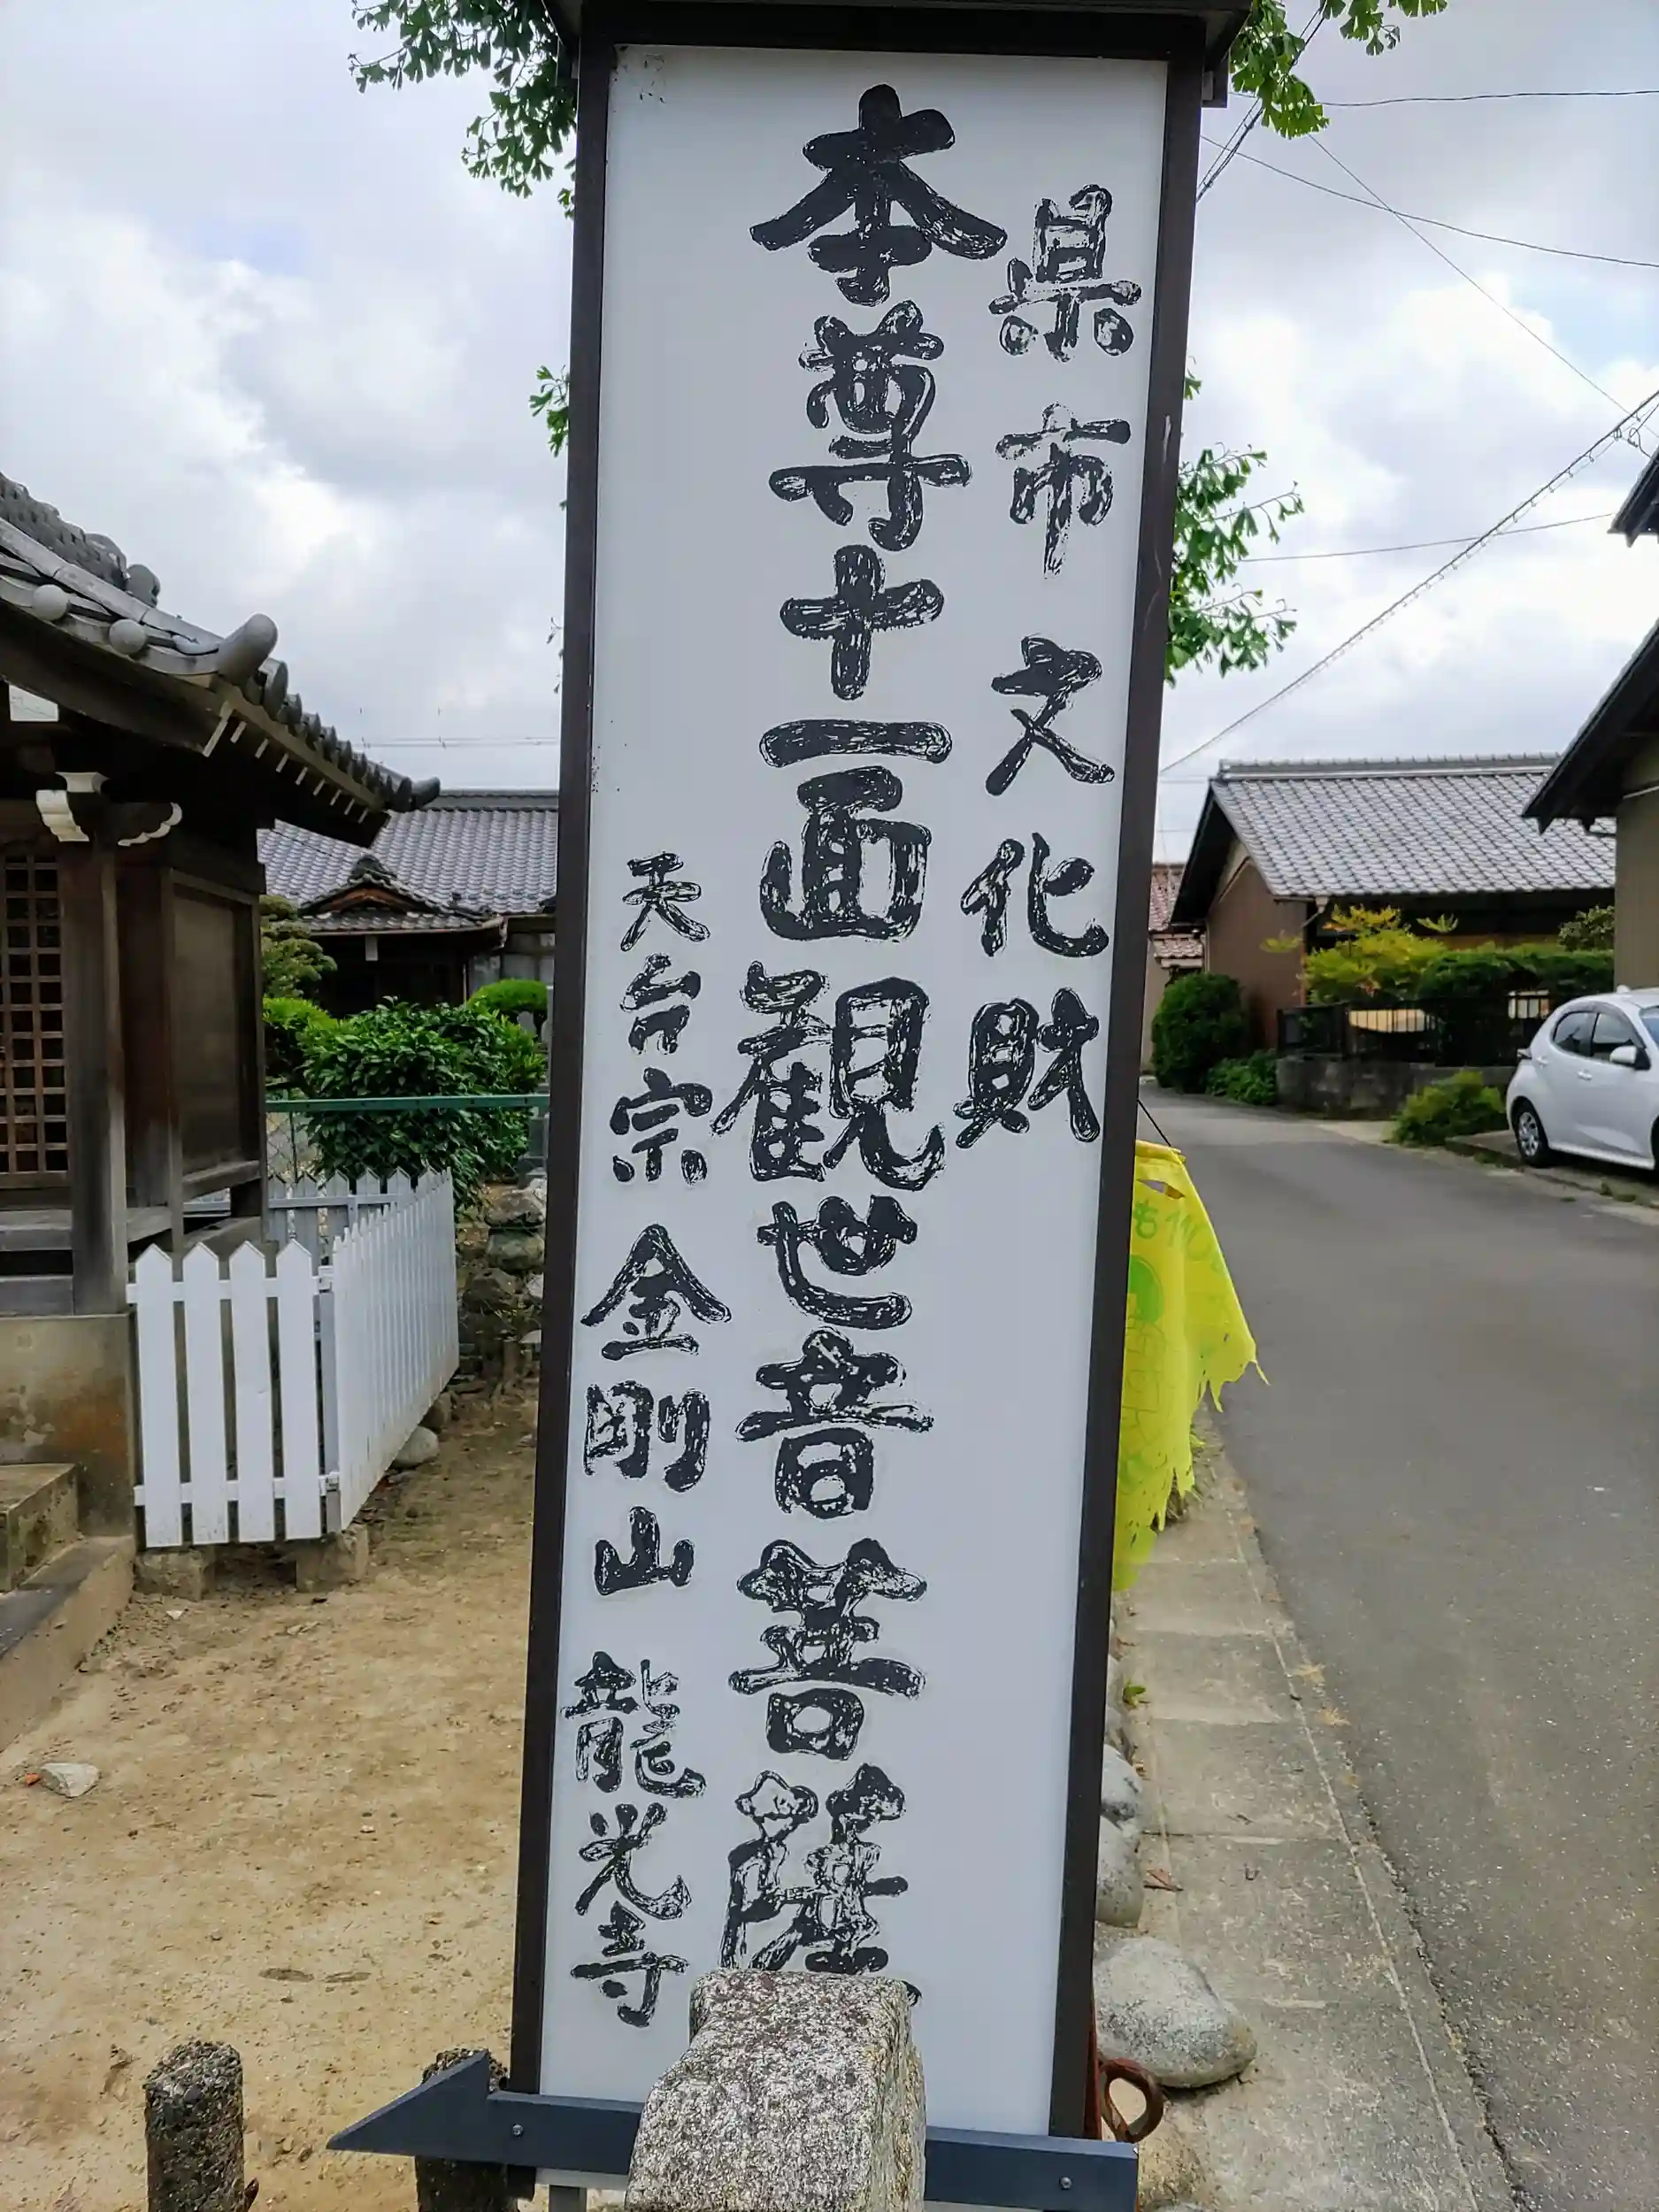 県市 文化財
本尊十一面観世音菩薩
天台宗 金剛山 龍光寺